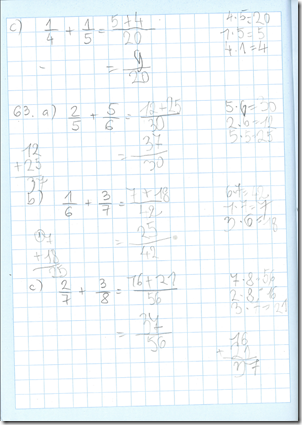 c) 1/4 + 1/5 = 5+4/20
= 9/20
4·5=20
1·5=5
4·1=4
63. a) 2/5 + 5/6 = 12+25/30
= 37/30
5·6=30
2·6=12
5·5=25
12
+25
37
b) 1/6 + 3/7 = 7+18/42
= 25/42
1·7=7
3·6=18
+18
25
c) 2/7 + 3/8 = 16+21/56
= 37/56
7·8=56
2·8=16
16
+
37